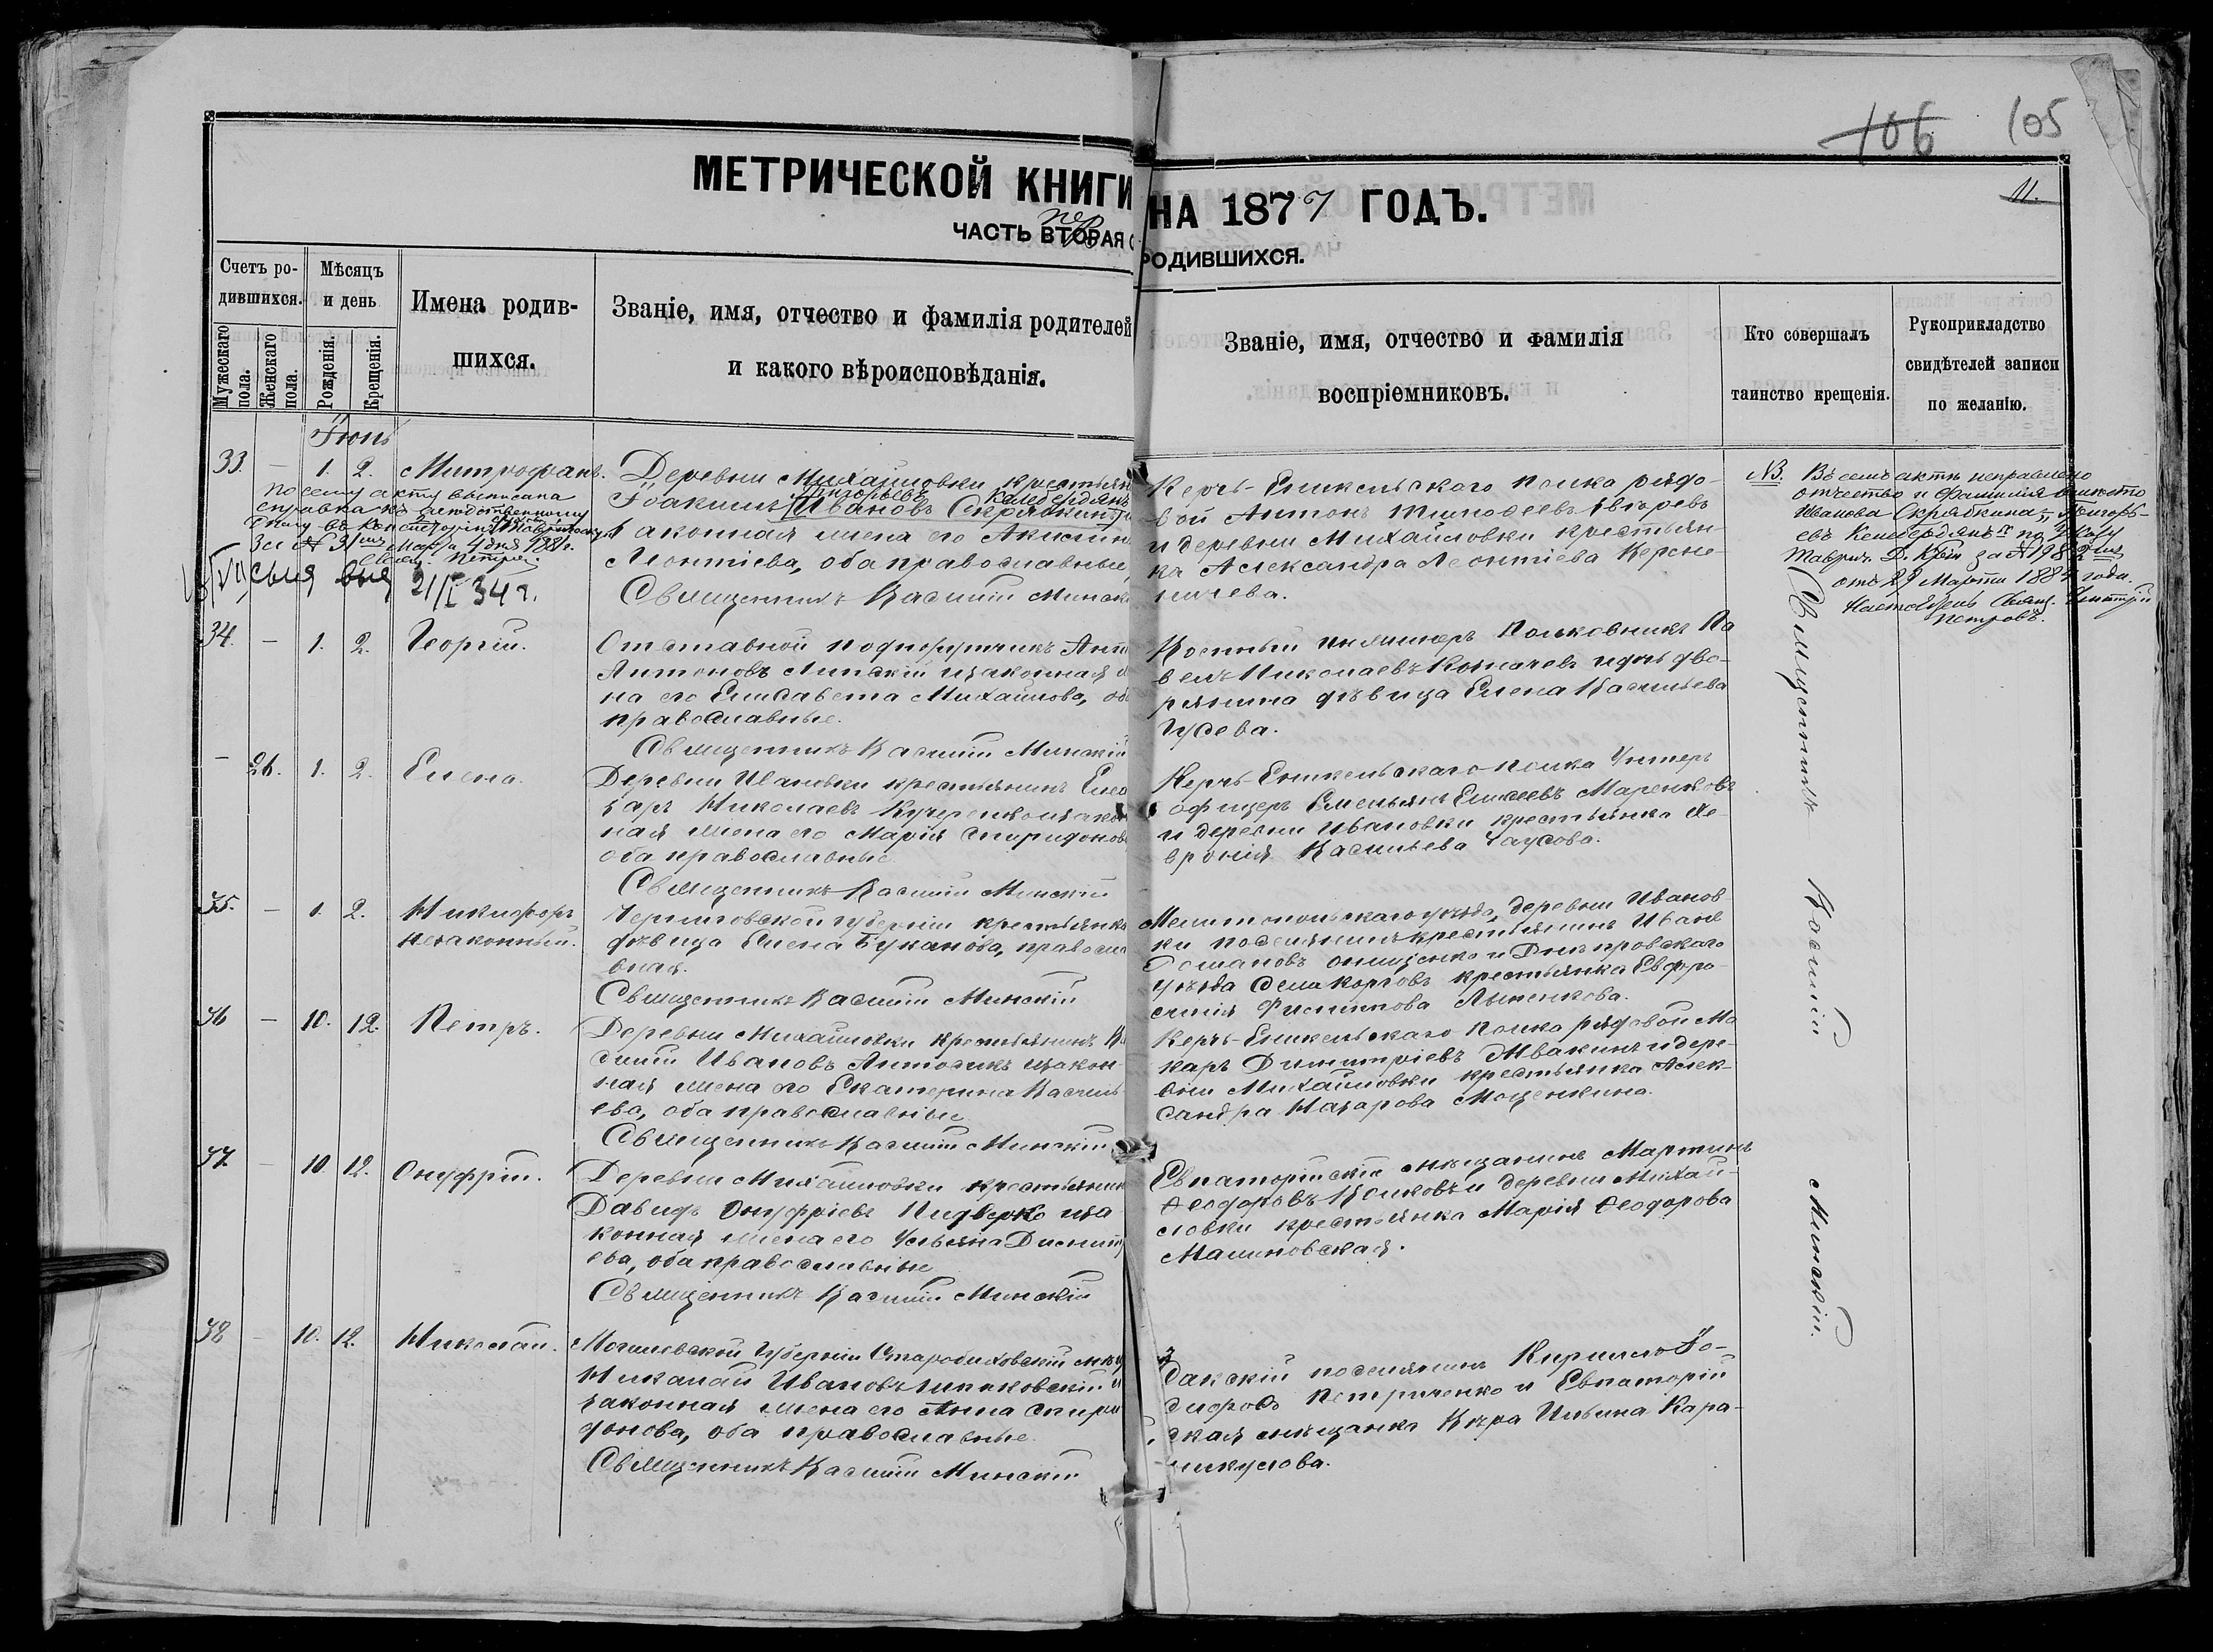 106 105
11.
МЕТРИЧЕСКОЙ КНИГИ НА 1877 ГОДЪ.
ЧАСТЬ ВТОРАЯ О РОДИВШИХСЯ.
пер
Счетъ ро-
дившихся.
Мужескаго пола.
Женскаго пола.
Мѣсяцъ
и день
Рожденія.
Крещенія.
Имена родив-
шихся.
Званіе, имя, отчество и фамилія родителей
и какого вѣроисповѣданія.
Званіе, имя, отчество и фамилія
воспріемниковъ.
Кто совершалъ
таинство крещенія.
Рукоприкладство
свидѣтелей записи
по желанію.
Іюнь
33. — 1. 2. Митрофанъ.
По сему акту выписана
справка къ
За № 31 Марта 4 дня 1881 г.
21/I 34 г.
Деревни Михайловки крестьян
Григорьевъ
Іоакимъ Ивановъ Скрябкинъ и
законная жена его Аксин
Леонтіева, оба православные,
Священникъ Василій Минскі
Керчь-Еникольскаго полка рядо-
вой Антонъ Тимоѳеевъ
и деревни Михайловки крестьян-
ка Александра Леонтіева
NB. Въ семъ актѣ неправильно
отчество и фамилія вмѣсто
Иванова Скрябкина — Григорь-
евъ
Таврич. Д. К. за № 1982
отъ 29 Марта 1884 года.
Настоятель Свящ. Димитрій
Петровъ.
34. — 1. 2. Георгій.
Отставной подпоручикъ Ант
Антоновъ Липскій и законная
на его Елисавета Михайлова, об
православные.
Священникъ Василій Минскій
Военный инженеръ Полковникъ Па
велъ Николаевъ и дочь дво-
рянина дѣвица Елена Васильева
Гусева.
— 26. 1. 2. Елена.
Деревни Ивановки крестьянинъ Елеа
заръ Николаевъ Кучеренко и закон
ная жена его Марія Спиридонов
оба православные.
Священникъ Василій Минскій
Керчь-Еникольскаго полка Унтеръ
офицеръ Емельянъ Елисеевъ Маренковъ
и деревни Ивановки крестьянка Ѳе-
вронія Васильева Чаусова.
35. — 1. 2. Никифоръ
незаконный.
Черниговской губерніи крестьянка
дѣвица Елена Буканова, правосла
вная.
Священникъ Василій Минскій
Мелитопольскаго уѣзда, деревни Иванов
ки поселянинъ крестьянинъ Иванъ
Романовъ Онищенко и Днѣпровскаго
уѣзда села крестьянка Евфро-
синія Филиппова
36 — 10. 12. Петръ.
Деревни Михайловки крестьянинъ Ва
силій Ивановъ и закон-
ная жена его Екатерина Василь
ева, оба православные
Священникъ Василій Минскій
Керчь-Еникольскаго полка рядовой Ма
каръ Димитріевъ и дере-
вни Михайловки крестьянка Алек-
сандра Назарова Моценкина.
37. — 10. 12. Онуфрій.
Деревни Михайловки крестьянин
Давидъ Онуфріевъ и за
конная жена его Ульяна
ева, оба православные
Священникъ Василій Минскій
Евпаторійскій мѣщанинъ Мартинъ
Ѳеодоровъ и деревни Михай-
ловки крестьянка Марія Ѳеодорова
Малиновская.
38 — 10. 12. Николай.
Могилевской губерніи Старобыховскій мѣщ
Николай Ивановъ и
законная жена его Анна Спири
донова, оба православные.
Священникъ Василій Минскій
поселянинъ Кириллъ Іо-
сифовъ Петриченко и Евпаторій
ская мѣщанка Вѣра Ильина Кара-
Священникъ Василій Минскій.